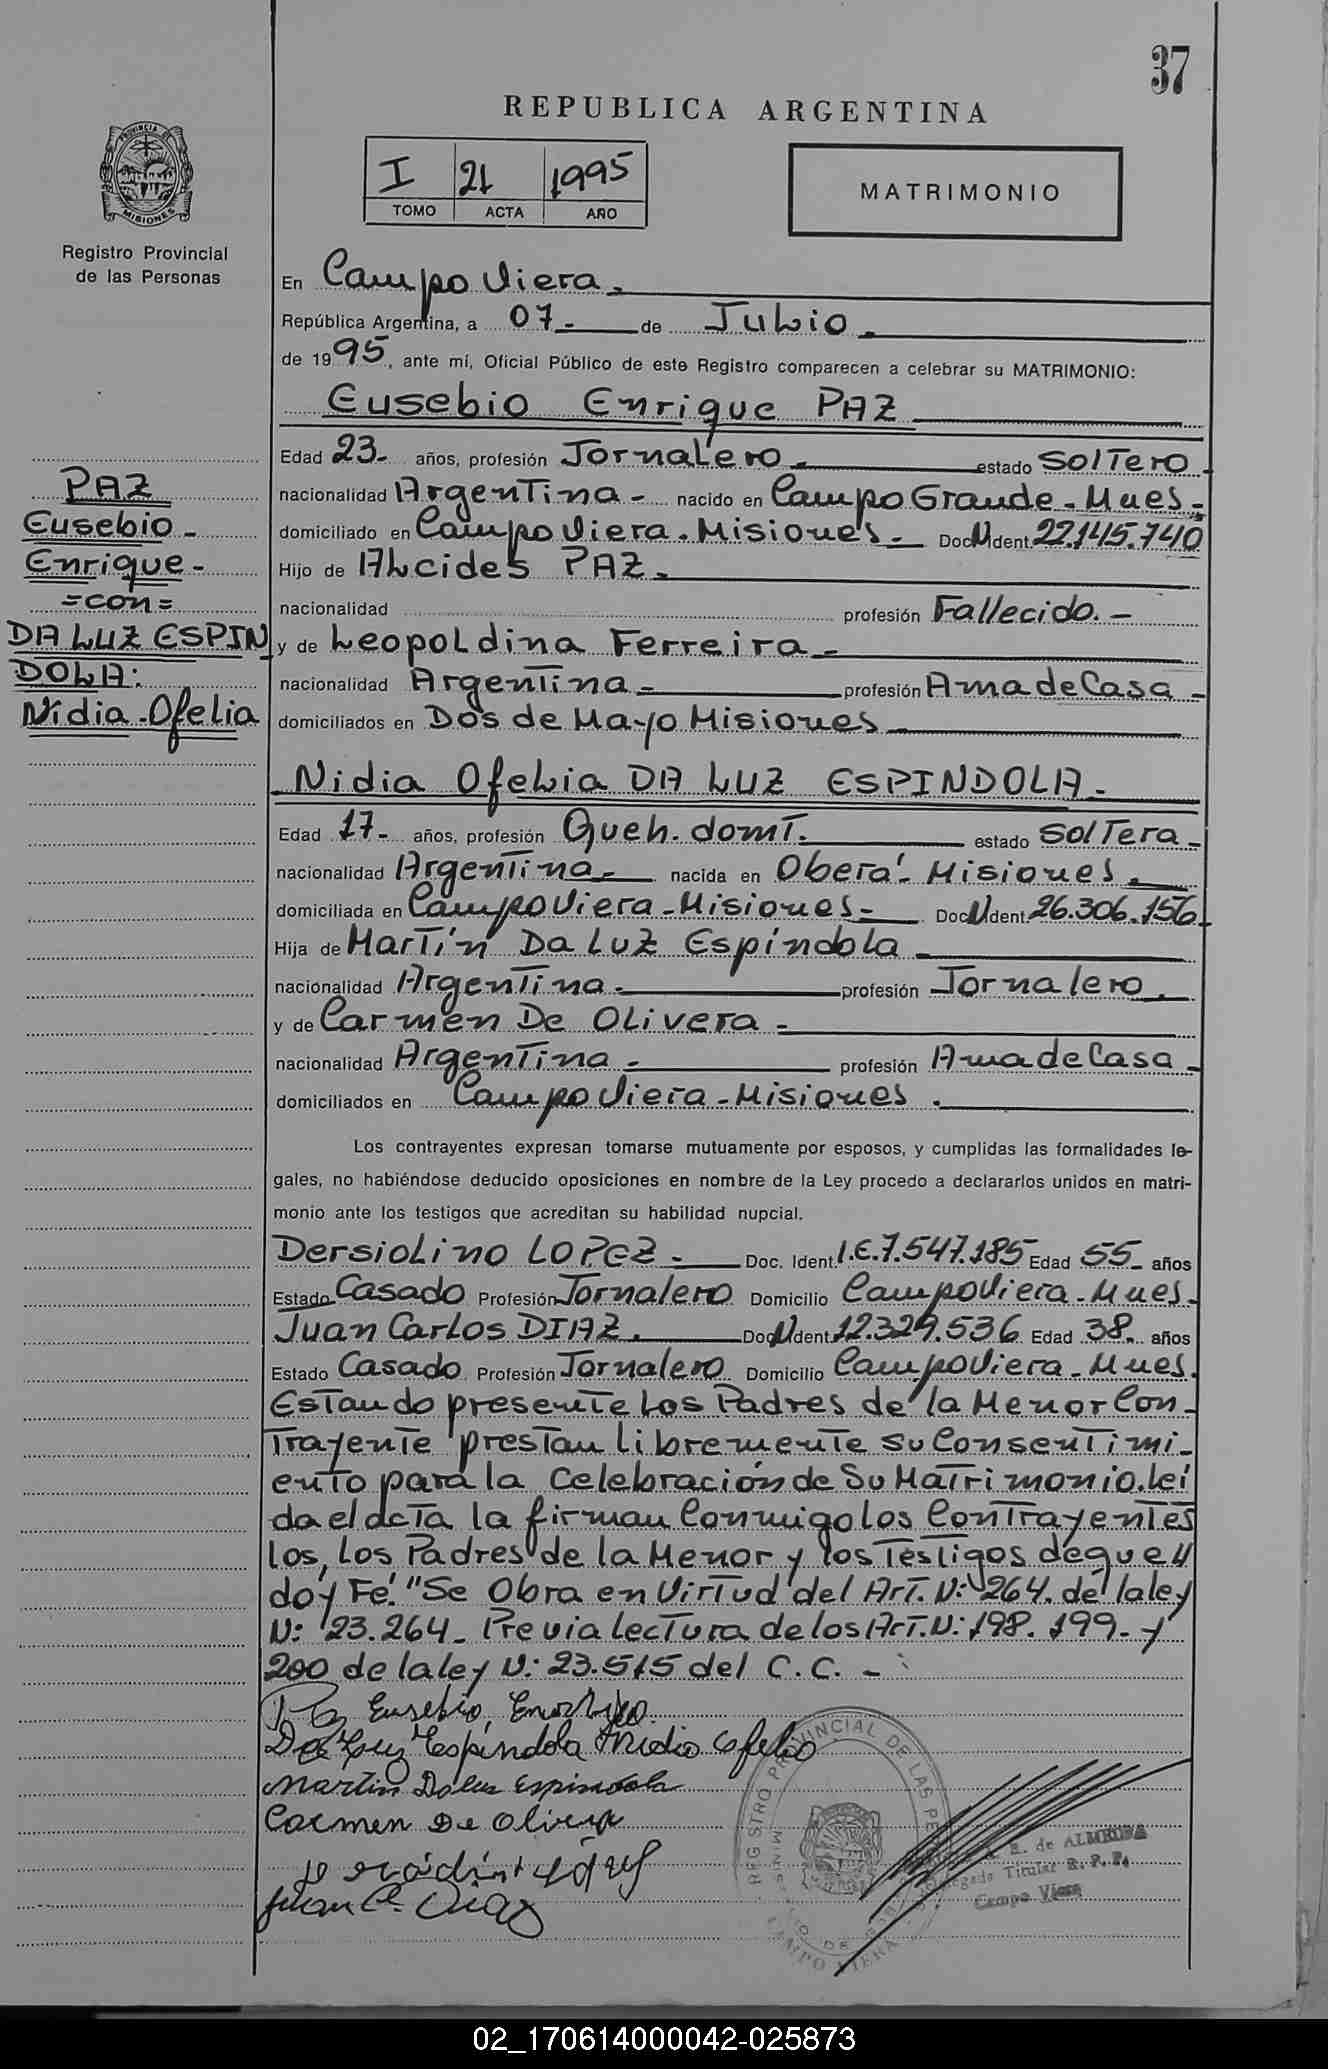 37
REPUBLICA ARGENTINA
I 21 1995
TOMO ACTA AÑO
MATRIMONIO
PROVINCIA DE MISIONES
Registro Provincial
de las Personas
En Campo Viera.
República Argentina, a 07- de Julio.
de 1995, ante mí, Oficial Público de este Registro comparecen a celebrar su MATRIMONIO:
Eusebio Enrique PAZ
Edad 23- años, profesión Jornalero- estado Soltero-
nacionalidad Argentina- nacido en Campo Grande-Mnes-
domiciliado en Campo Viera-Misiones- Doc N Ident. 22.145.740
Hijo de Alcides PAZ-
nacionalidad profesión Fallecido.-
y de Leopoldina Ferreira-
nacionalidad Argentina- profesión Ama de Casa-
domiciliados en Dos de Mayo Misiones
PAZ
Eusebio-
Enrique-
=con=
DA LUZ ESPIN
DOLA:
Nidia-Ofelia
Nidia Ofelia DA LUZ ESPINDOLA-
Edad 17- años, profesión Queh. domt. estado Soltera-
nacionalidad Argentina- nacida en Oberá- Misiones.
domiciliada en Campo Viera-Misiones- Doc N Ident. 26.306.156
Hija de Martín Da Luz Espíndola
nacionalidad Argentina- profesión Jornalero.
y de Carmen De Olivera-
nacionalidad Argentina- profesión Ama de Casa-
domiciliados en Campo Viera-Misiones.
Los contrayentes expresan tomarse mutuamente por esposos, y cumplidas las formalidades le-
gales, no habiéndose deducido oposiciones en nombre de la Ley procedo a declararlos unidos en matri-
monio ante los testigos que acreditan su habilidad nupcial.
Dersiolino LOPEZ- Doc. Ident. I.E.7.547.185 Edad 55- años
Estado Casado Profesión Jornalero Domicilio Campo Viera-Mnes-
Juan Carlos DIAZ. Doc N Ident. 12.329.536 Edad 38- años
Estado Casado Profesión Jornalero Domicilio Campo Viera-Mnes.
Estando presente los Padres de la Menor Con-
trayente prestan libremente su Consentimi-
ento para la Celebración de Su Matrimonio.lei
da el acta la firman Conmigo los Contrayentes
los, Los Padres de la Menor y los Testigos deque
doy Fé. "Se Obra en Virtud del Art. N: 264. de la ley
N: 23.264- Previa lectura de los Art. N: 198. 199- y
200 de la ley N: 23.515 del C.C.-
Paz Eusebio, Enrique.
Da Luz Espindola Nidia Ofelia
Martin Da luz Espindola
Carmen De Olivera
Juan C. Diaz
REGISTRO PROVINCIAL DE LAS PE
CAMPO VIERA
E. de ALMEIDA
Delegada Titular R. P. P.
Campo Viera
02_170614000042-025873